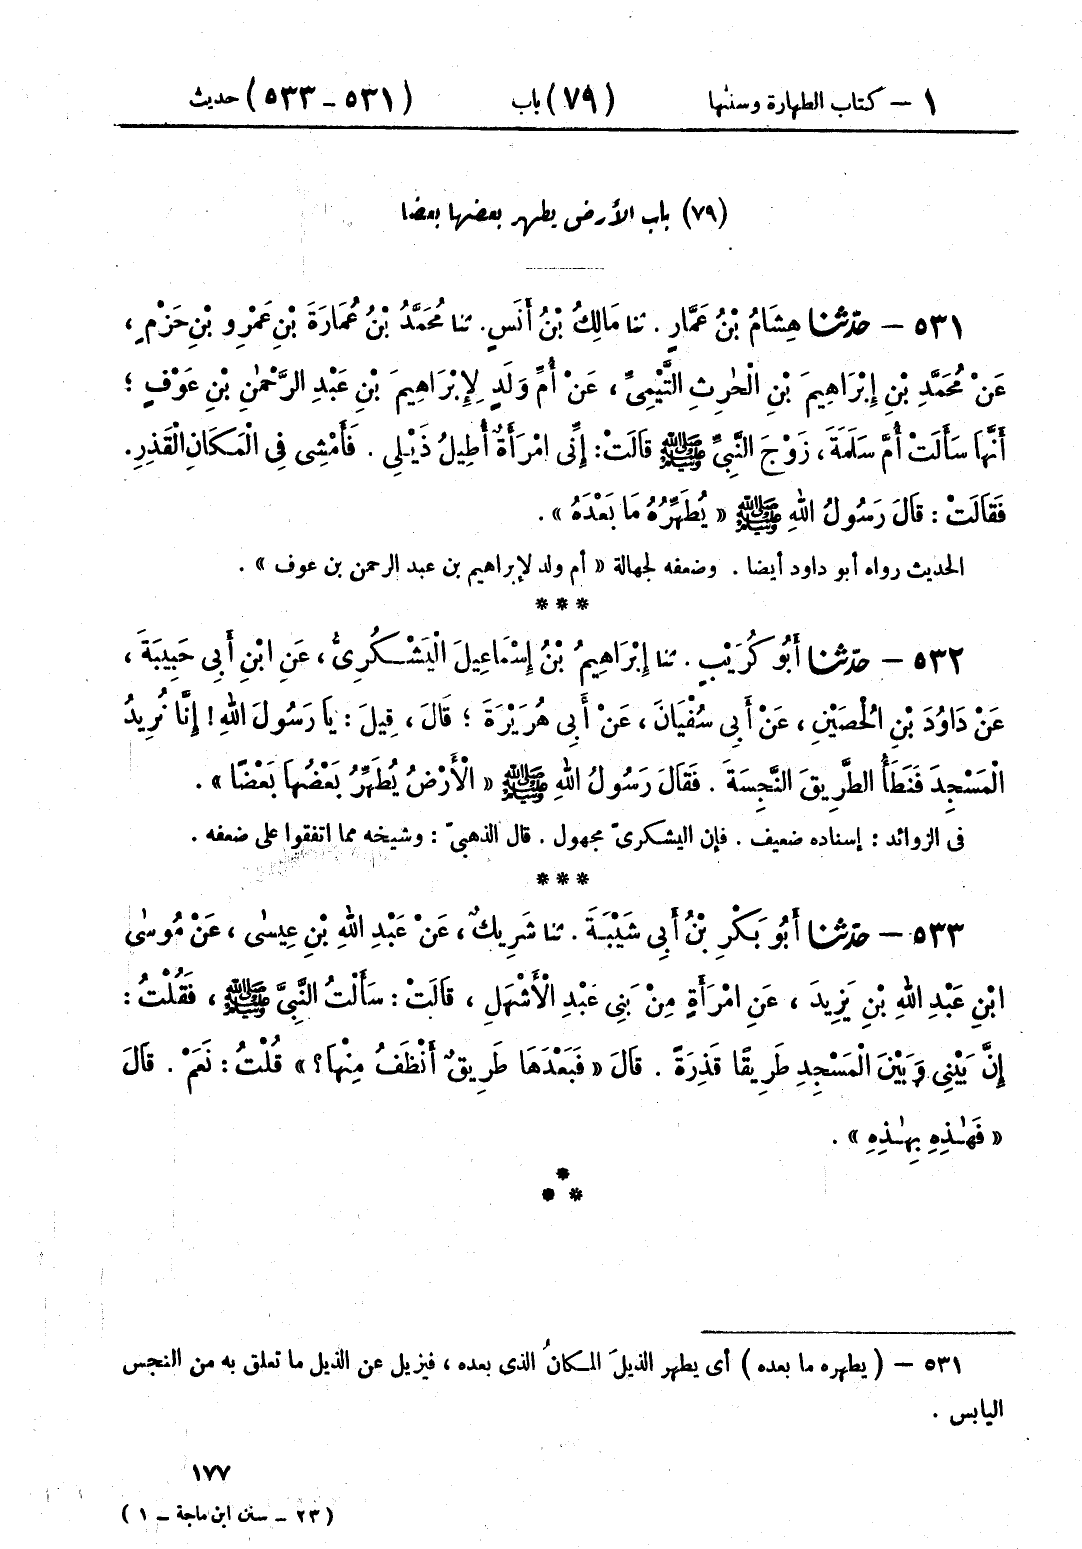 ١ – كتاب الطهارة وسننها (٧٩) باب (٥٣١ – ٥٣٣) حديث
(٧٩) باب الأرض يطهر بعضها بعضا
٥٣١ – حدّثنا هِشَامُ بْنُ عَمَّارٍ . ثنا مَالِكُ بْنُ أَنَسٍ . ثنا مُحَمَّدُ بْنُ عُمَارَةَ بْنِ عَمْرِو بْنِ حَزْمٍ ،
عَنْ مُحَمَّدِ بْنِ إِبْرَاهِيمَ بْنِ الْحٰرِثِ التَّيْمِىِّ ، عَنْ أُمِّ وَلَدٍ لِإِبْرَاهِيمَ بْنِ عَبْدِ الرَّحْمٰنِ بْنِ عَوْفٍ ؛
أَنَّهَا سَأَلَتْ أُمَّ سَلَمَةَ ، زَوْجَ النَّبِيِّ ﷺ قَالَتْ : إِنِّى امْرَأَةٌ أُطِيلُ ذَيْلِى . فَأَمْشِى فِى الْمَكَانِ الْقَذِرِ .
فَقَالَتْ : قَالَ رَسُولُ اللهِ ﷺ « يُطَهِّرُهُ مَا بَعْدَهُ » .
الحديث رواه أبو داود أيضا . وضعفه لجهالة « أم ولد لإبراهيم بن عبد الرحمن بن عوف » .
* * *
٥٣٢ – حدّثنا أَبُو كُرَيْبٍ . ثنا إِبْرَاهِيمُ بْنُ إِسْمَاعِيلَ الْيَشْكُرِىُّ ، عَنِ ابْنِ أَبِى حَبِيبَةَ ،
عَنْ دَاوُدَ بْنِ الْحُصَيْنِ ، عَنْ أَبِى سُفْيَانَ ، عَنْ أَبِى هُرَيْرَةَ ؛ قَالَ ، قِيلَ : يَا رَسُولَ اللهِ ! إِنَّا نُرِيدُ
الْمَسْجِدَ فَنَطَأُ الطَّرِيقَ النَّجِسَةَ . فَقَالَ رَسُولُ اللهِ ﷺ « الْأَرْضُ يُطَهِّرُ بَعْضُهَا بَعْضًا » .
فى الزوائد : إسناده ضعيف . فإن اليشكرىّ مجهول . قال الذهبىّ : وشيخه مما اتفقوا على ضعفه .
* * *
٥٣٣ – حدّثنا أَبُو بَكْرِ بْنُ أَبِى شَيْبَةَ . ثنا شَرِيكٌ ، عَنْ عَبْدِ اللهِ بْنِ عِيسٰى ، عَنْ مُوسٰى
ابْنِ عَبْدِ اللهِ بْنِ يَزِيدَ ، عَنِ امْرَأَةٍ مِنْ بَنِى عَبْدِ الْأَشْهَلِ ، قَالَتْ : سَأَلْتُ النَّبِيَّ ﷺ ، فَقُلْتُ :
إِنَّ بَيْنِى وَبَيْنَ الْمَسْجِدِ طَرِيقًا قَذِرَةً . قَالَ « فَبَعْدَهَا طَرِيقٌ أَنْظَفُ مِنْهَا ؟ » قُلْتُ : نَعَمْ . قَالَ
« فَهٰذِهِ بِهٰذِهِ » .
*
* *
٥٣١ – ( يطهره ما بعده ) أى يطهر الذيلَ المكانُ الذى بعده ، فيزيل عن الذيل ما تعلق به من النجس
اليابس .
١٧٧
( ٢٣ – سنن ابن ماجة – ١ )